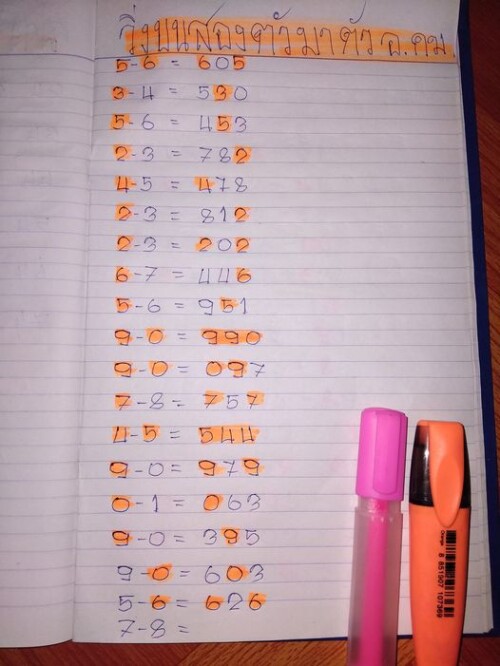 วิ่งบนสองตัวมาตัว อ.คม
5-6 = 605
3-4 = 530
5-6 = 453
2-3 = 782
4-5 = 478
2-3 = 812
2-3 = 202
6-7 = 446
5-6 = 951
9-0 = 990
9-0 = 097
7-8 = 757
4-5 = 544
9-0 = 979
0-1 = 063
9-0 = 395
9-0 = 603
5-6 = 626
7-8 =
8 851907 107369